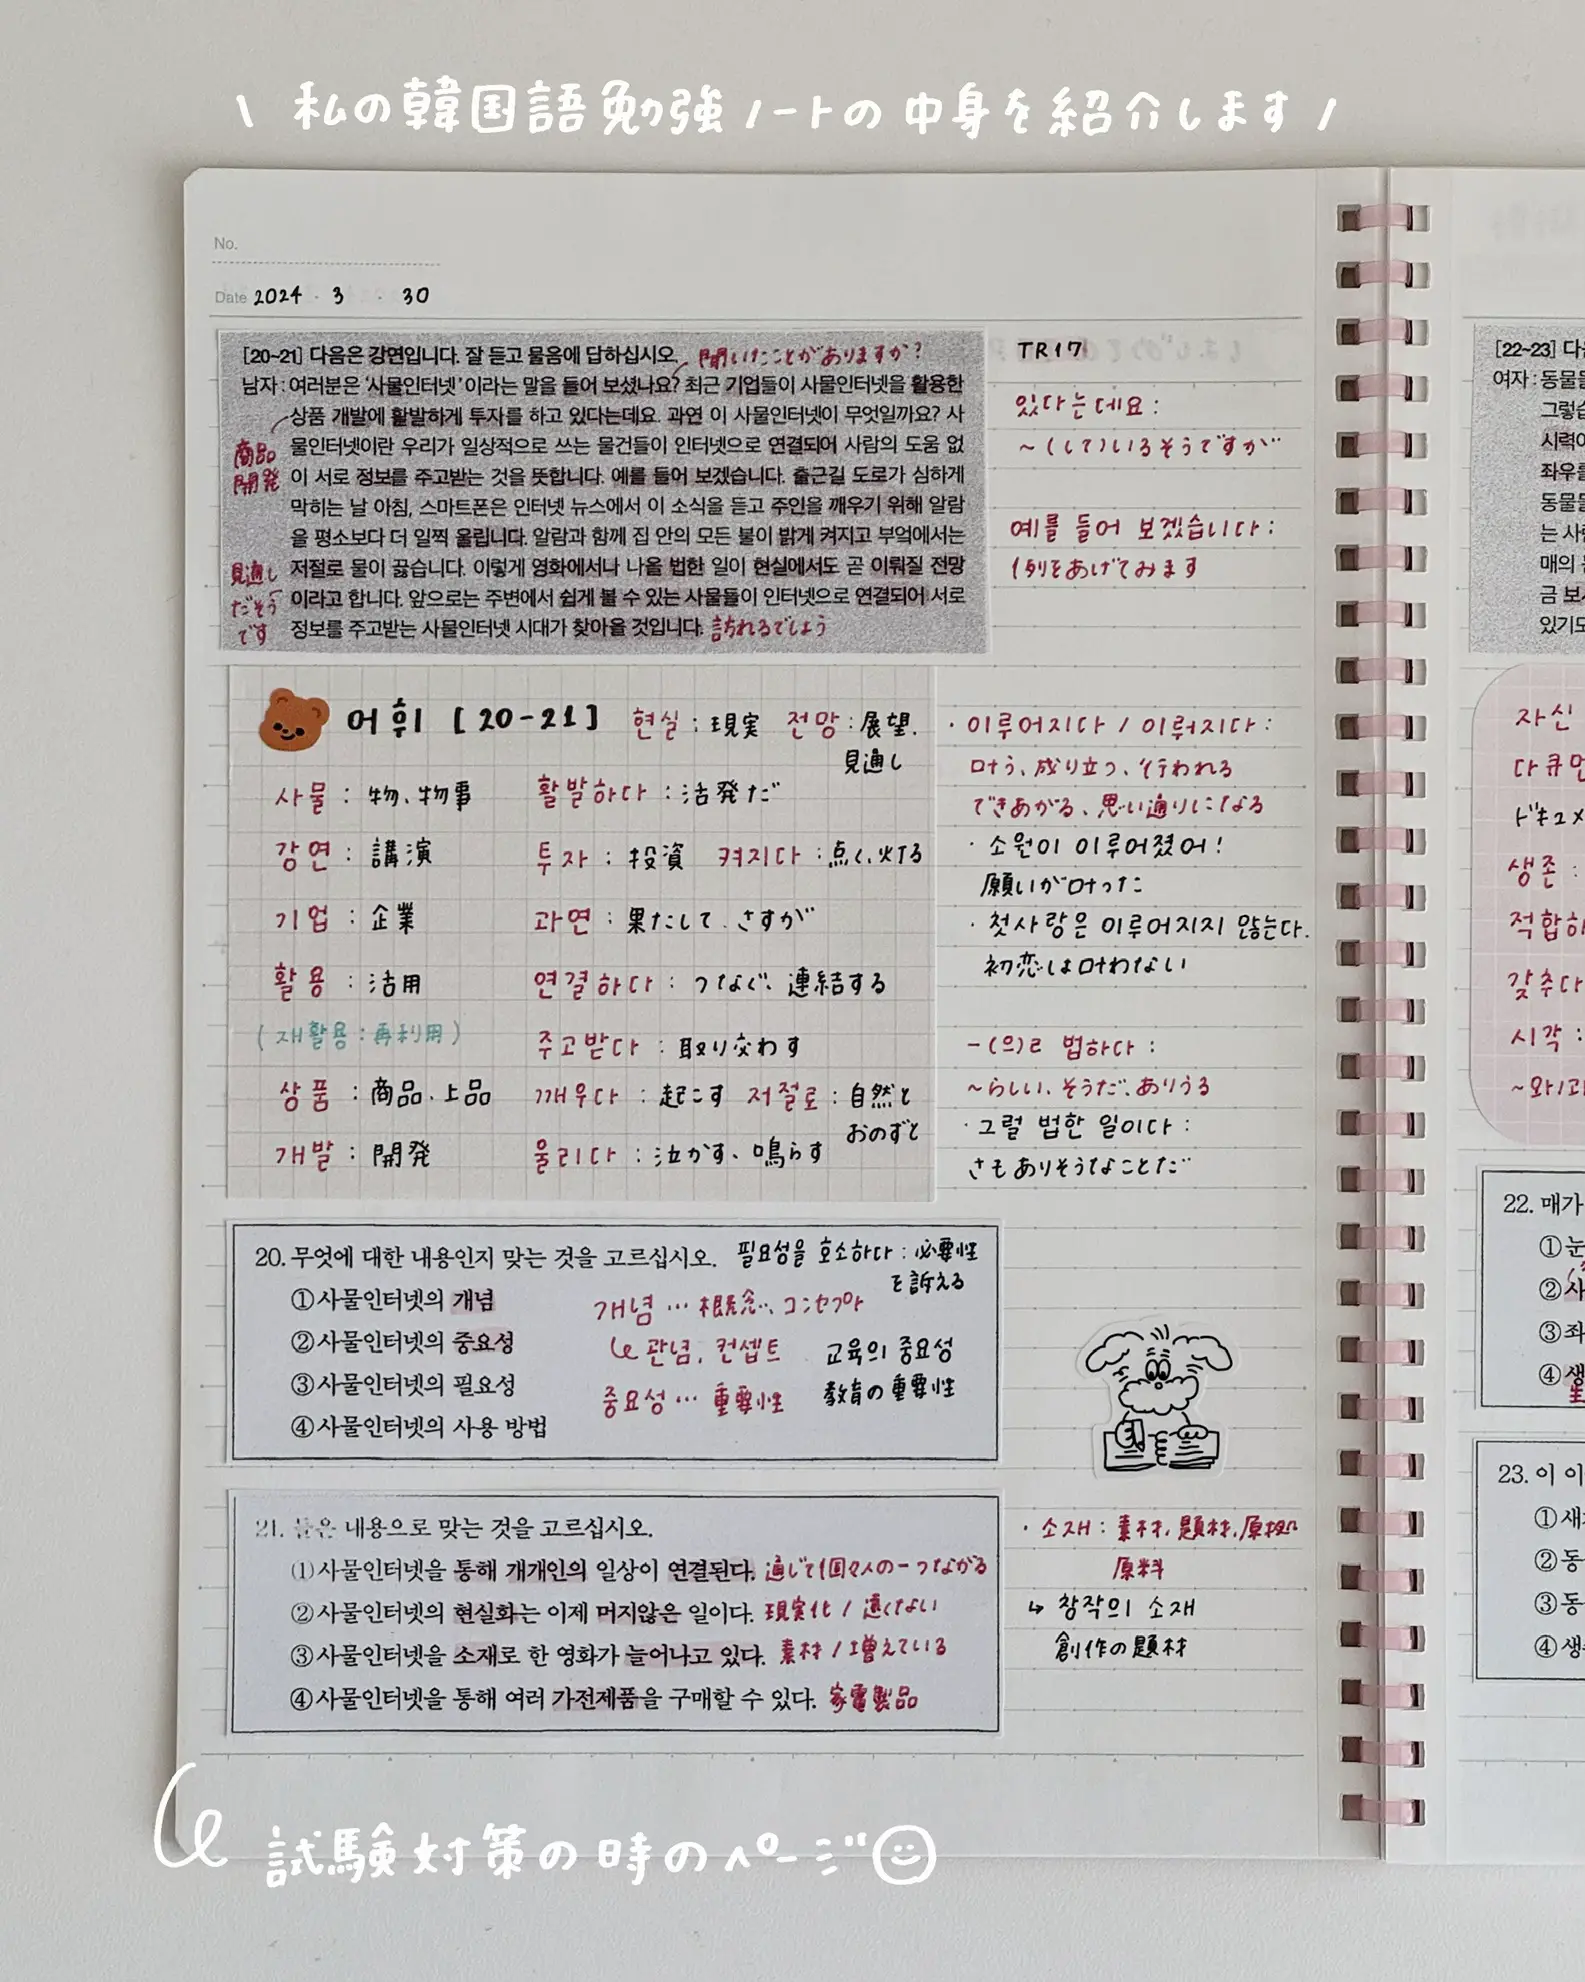 \ 私の韓国語勉強ノートの中身を紹介します /
No.
Date 2024 · 3 · 30
[20~21] 다음은 강연입니다. 잘 듣고 물음에 답하십시오. 聞いたことがありますか?
남자 : 여러분은 ‘사물인터넷’이라는 말을 들어 보셨나요? 최근 기업들이 사물인터넷을 활용한
상품 개발에 활발하게 투자를 하고 있다는데요. 과연 이 사물인터넷이 무엇일까요? 사
물인터넷이란 우리가 일상적으로 쓰는 물건들이 인터넷으로 연결되어 사람의 도움 없
이 서로 정보를 주고받는 것을 뜻합니다. 예를 들어 보겠습니다. 출근길 도로가 심하게
막히는 날 아침, 스마트폰은 인터넷 뉴스에서 이 소식을 듣고 주인을 깨우기 위해 알람
을 평소보다 더 일찍 울립니다. 알람과 함께 집 안의 모든 불이 밝게 켜지고 부엌에서는
저절로 물이 끓습니다. 이렇게 영화에서나 나올 법한 일이 현실에서도 곧 이뤄질 전망
이라고 합니다. 앞으로는 주변에서 쉽게 볼 수 있는 사물들이 인터넷으로 연결되어 서로
정보를 주고받는 사물인터넷 시대가 찾아올 것입니다. 訪れるでしょう
商品
開発
見通し
だそう
です
TR17
있다는데요:
~(して)いるそうですが
예를 들어 보겠습니다:
例をあげてみます
어휘 [20-21] 현실:現実 전망:展望.
見通し
사물:物、物事 활발하다:活発だ
강연:講演 투자:投資 켜지다:点く、灯る
기업:企業 과연:果たして、さすが
활용:活用 연결하다:つなぐ、連結する
(재활용:再利用)
주고받다:取り交わす
상품:商品、上品 깨우다:起こす 저절로:自然と
おのずと
개발:開発 울리다:泣かす、鳴らす
· 이루어지다 / 이뤄지다:
叶う、成り立つ、行われる
できあがる、思い通りになる
· 소원이 이루어졌어!
願いが叶った
· 첫사랑은 이루어지지 않는다.
初恋は叶わない
-(으)ㄹ 법하다:
~らしい、そうだ、ありうる
· 그럴 법한 일이다:
さもありそうなことだ
20. 무엇에 대한 내용인지 맞는 것을 고르십시오. 필요성을 호소하다:必要性
を訴える
①사물인터넷의 개념 개념…概念、コンセプト
②사물인터넷의 중요성 ↳관념, 컨셉트 교육의 중요성
③사물인터넷의 필요성 중요성…重要性 教育の重要性
④사물인터넷의 사용 방법
21. 들은 내용으로 맞는 것을 고르십시오.
①사물인터넷을 통해 개개인의 일상이 연결된다. 通じて個々人の-つながる
②사물인터넷의 현실화는 이제 머지않은 일이다. 現実化 / 遠くない
③사물인터넷을 소재로 한 영화가 늘어나고 있다. 素材 / 増えている
④사물인터넷을 통해 여러 가전제품을 구매할 수 있다. 家電製品
· 소재:素材、題材、原拠
原料
↳ 창작의 소재
創作の題材
[22~23] 다음
여자 : 동물들
그렇습
시력이
좌우를
동물들
는 사
매의
금 보
있기도
자신
다큐먼
ドキュメ
생존:
적합하
갖추다
시각:
~와/과
22. 매가
①눈
②사
③좌
④생
23. 이 이
①새
②동
③동
④생
試験対策の時のページ